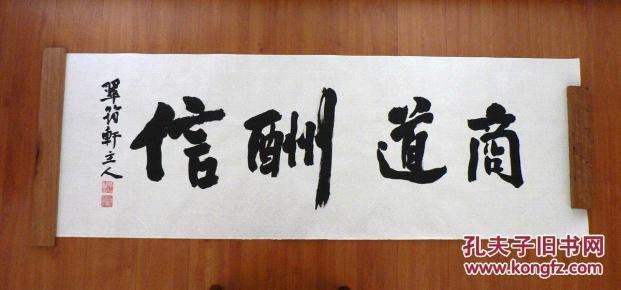 商道酬信
翠筠軒主人
孔夫子旧书网
www.kongfz.com